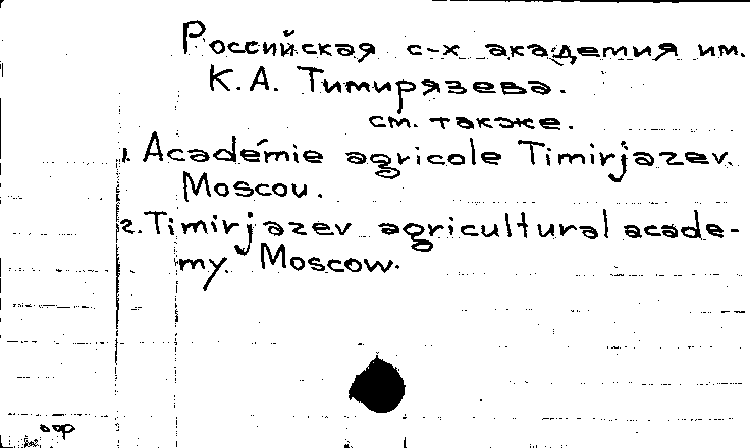 Российская с-х академия им.
К.А. Тимирязева.
см. также.
1. Académie agricole Timirjazev.
Moscou.
2. Timirjazev agricultural acade-
my. Moscow.